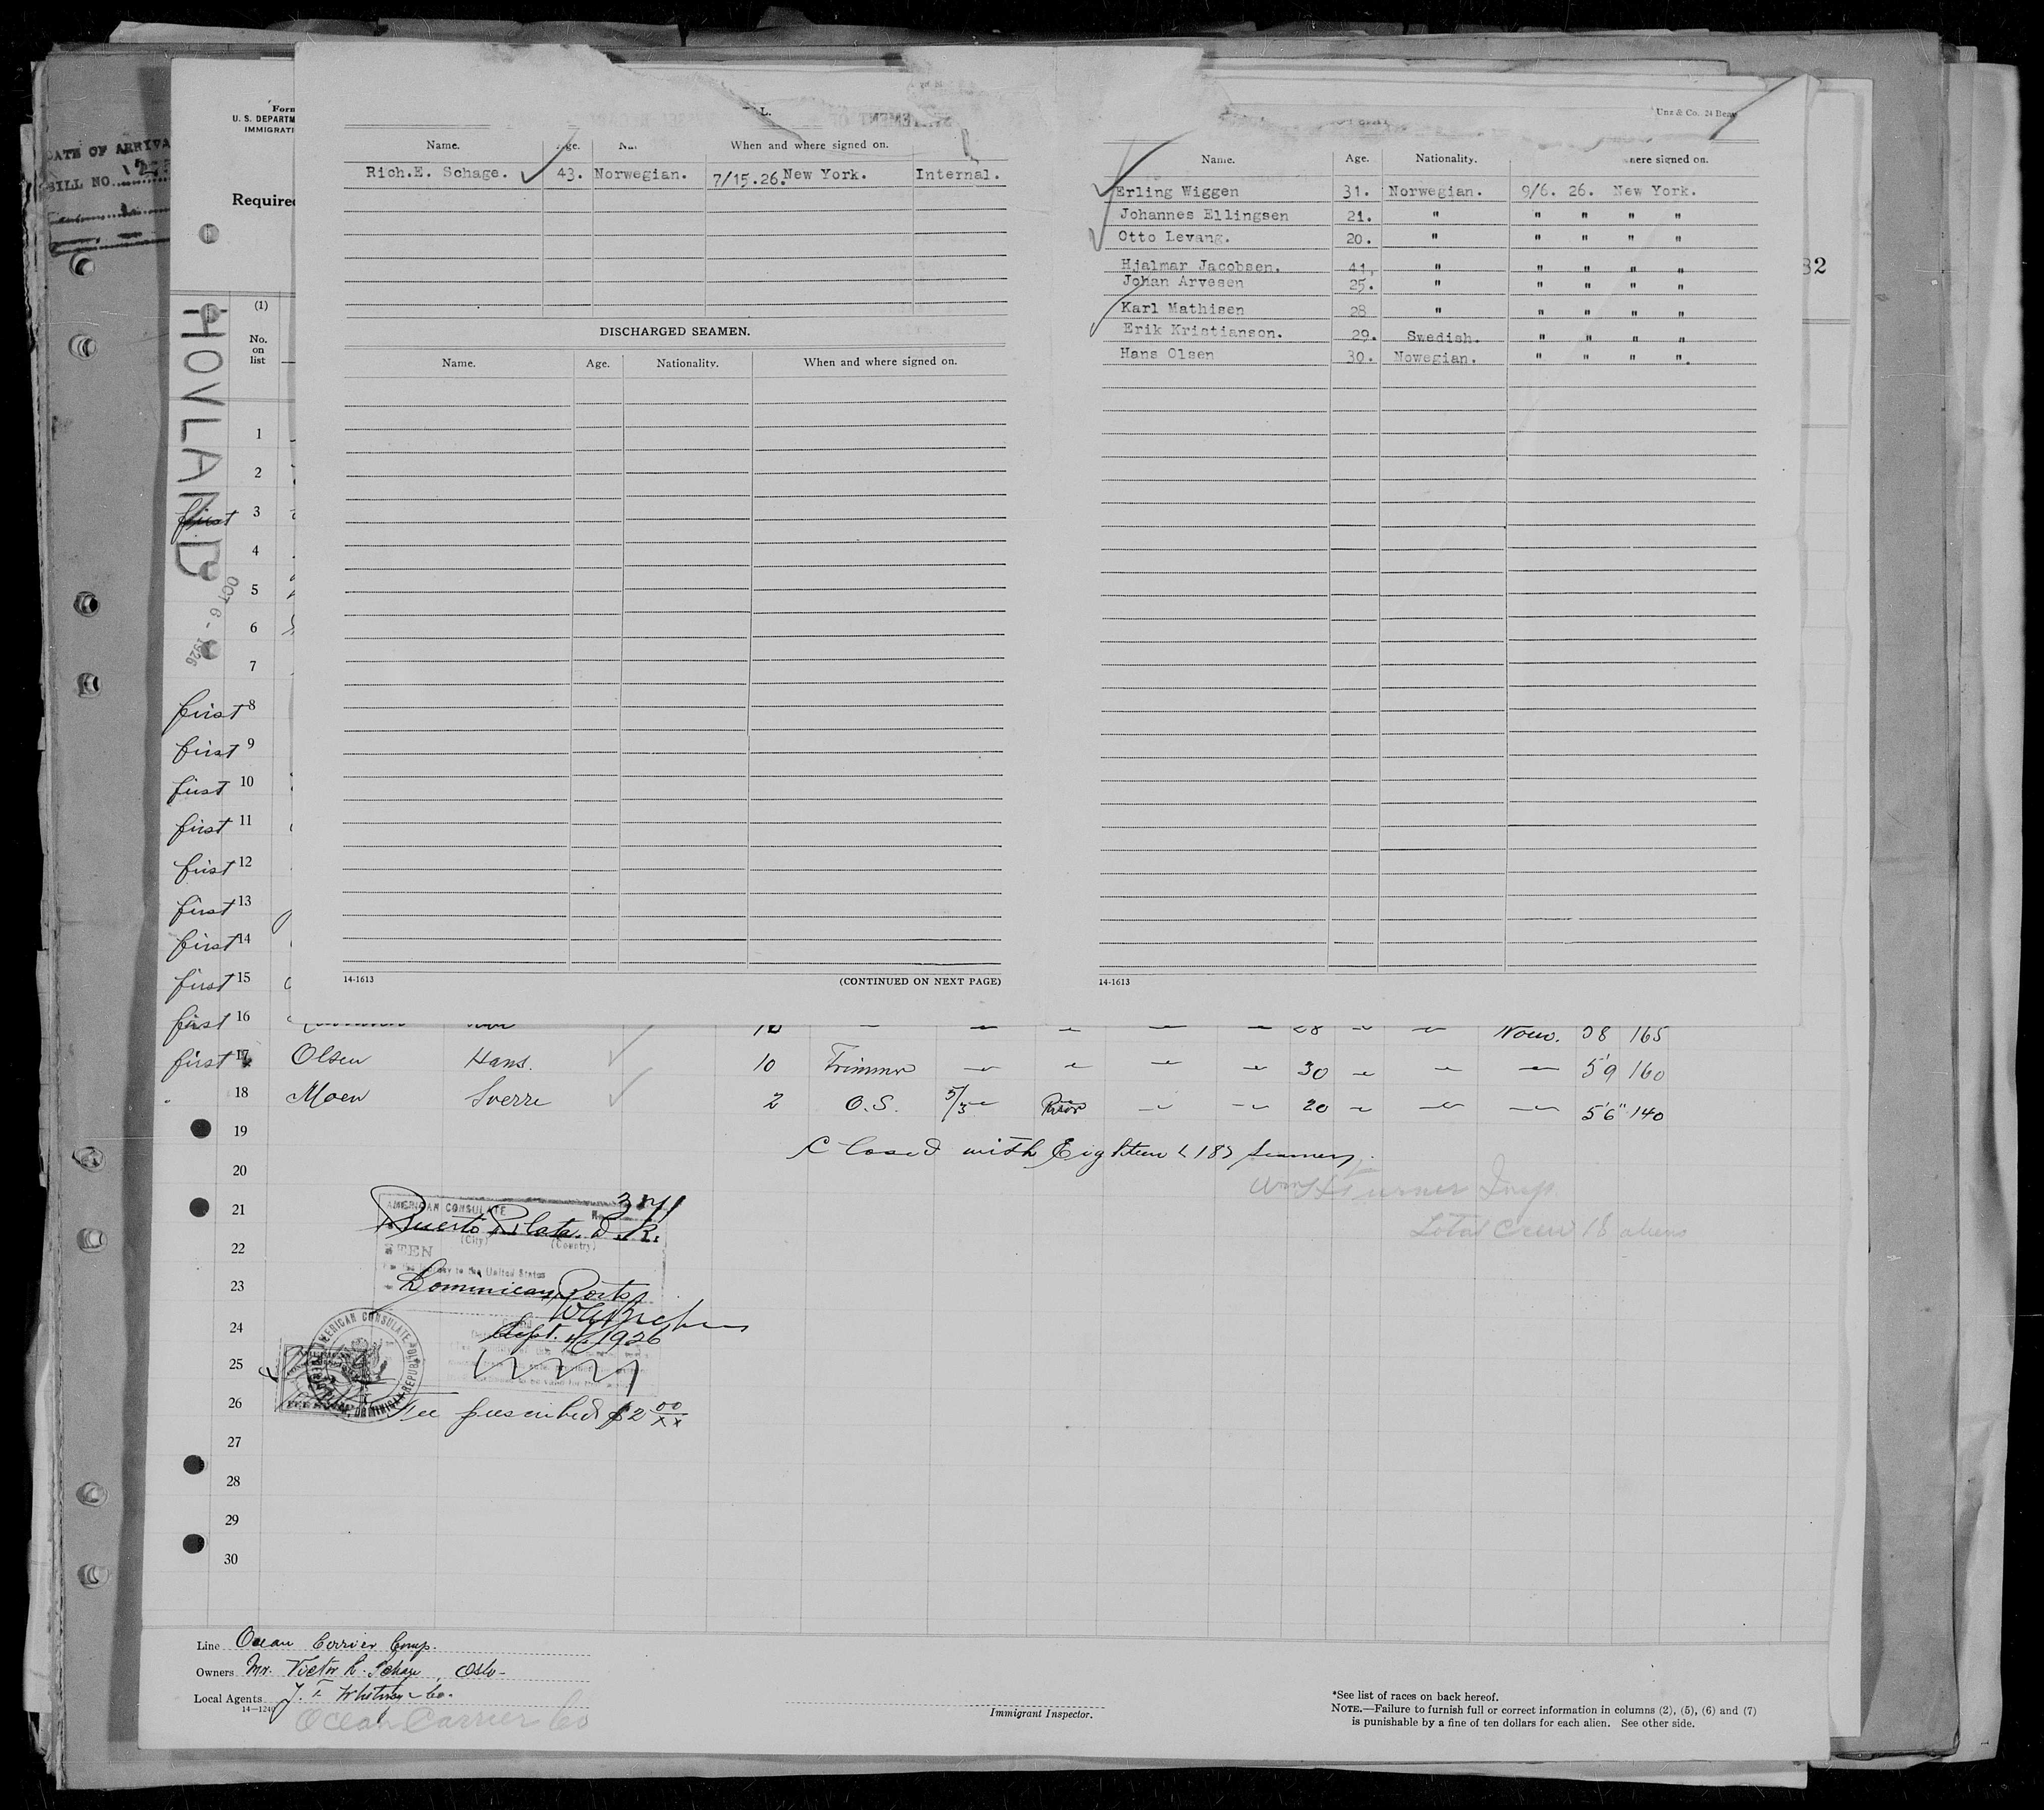 DATE OF ARRIVA
BILL NO.
Form
U. S. DEPARTM
IMMIGRATI
Required
HOVLAND
OCT 6 - 1926
(1)
No.
on
list
L.
Name. Age. Na When and where signed on.
Rich.E. Schage. 43. Norwegian. 7/15.26. New York. Internal.
DISCHARGED SEAMEN.
Name. Age. Nationality. When and where signed on.
14-1613 (CONTINUED ON NEXT PAGE)
Unz & Co. 24 Beav
Name. Age. Nationality. here signed on.
Erling Wiggen 31. Norwegian. 9/6. 26. New York.
Johannes Ellingsen 21. " " " " "
Otto Levang. 20. " " " " "
Hjalmar Jacobsen. 41. " " " " "
Johan Arvesen 25. " " " " "
Karl Mathisen 28 " " " " "
Erik Kristianson. 29. Swedish. " " " "
Hans Olsen 30. Nowegian. " " " ".
14-1613
82
1
2
first 3
4
5
6
7
first 8
first 9
first 10
first 11
first 12
first 13
first 14
first 15
first 16 10 — — — — — 28 — — Norw. 58 165
first 17 Olsen Hans. 10 Trimmer — — — — 30 — — — 5'9 160
18 Moen Sverre 2 O.S. 5/5 — — — 20 — — — 5'6" 140
19 Closed with Eighteen <18> seamen.
20
Turner Insp
Total Crew 18 aliens
21 AMERICAN CONSULATE
Puerto Plata. D.R.
(City) (Country)
22
to the United States
23 Dominican Ports
24 Sept. 1926
AMERICAN CONSULATE
DOMINICAN REPUBLIC
25
26 Fee prescribed $2 00/xx
27
28
29
30
Line Ocean Carrier Comp.
Owners Mr. Victor Oslo-
Local Agents J. F. Whitney & Co.
14—1240
Ocean Carrier Co
Immigrant Inspector.
*See list of races on back hereof.
NOTE.—Failure to furnish full or correct information in columns (2), (5), (6) and (7)
is punishable by a fine of ten dollars for each alien. See other side.